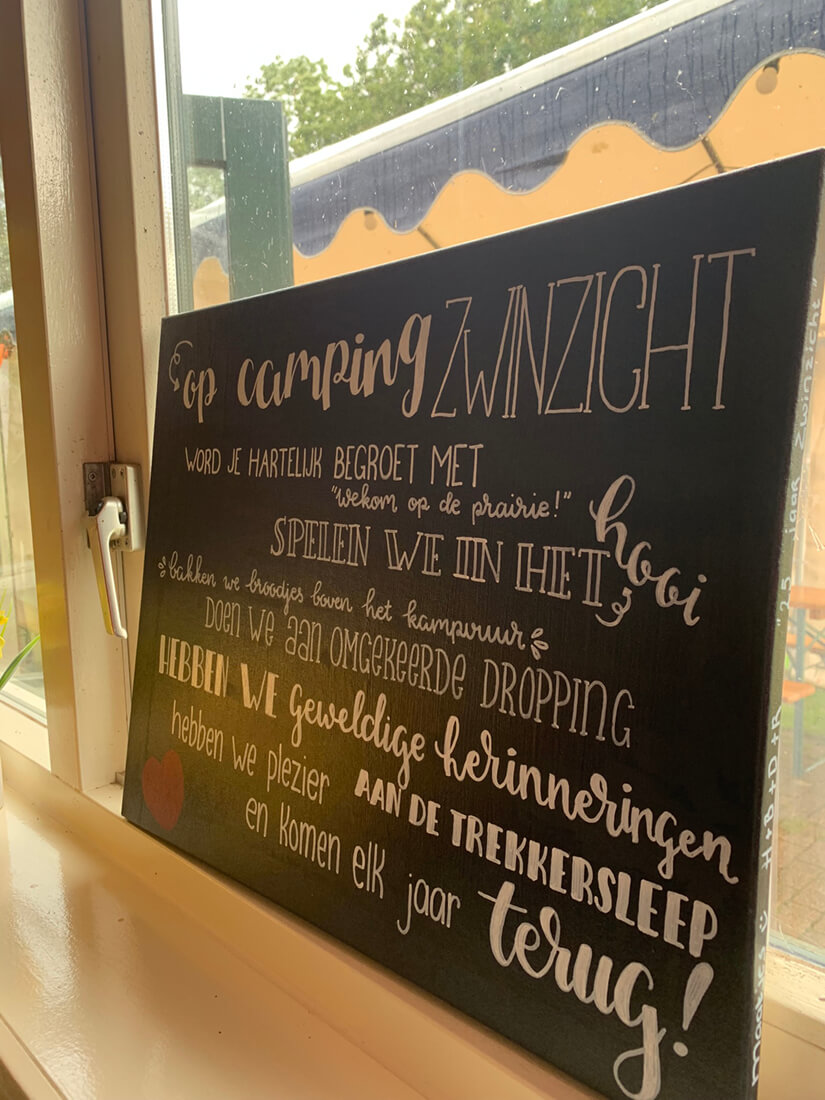 op camping ZWINZICHT
WORD JE HARTELIJK BEGROET MET
"wekom op de prairie!"
SPELEN WE IN HET hooi
bakken we broodjes boven het kampvuur
DOEN WE aan OMGEKEERDE DROPPING
HEBBEN WE geweldige herinneringen
AAN DE TREKKERSLEEP
hebben we plezier
en komen elk jaar terug!
"25 jaar Zwinzicht"
H+B+D+R